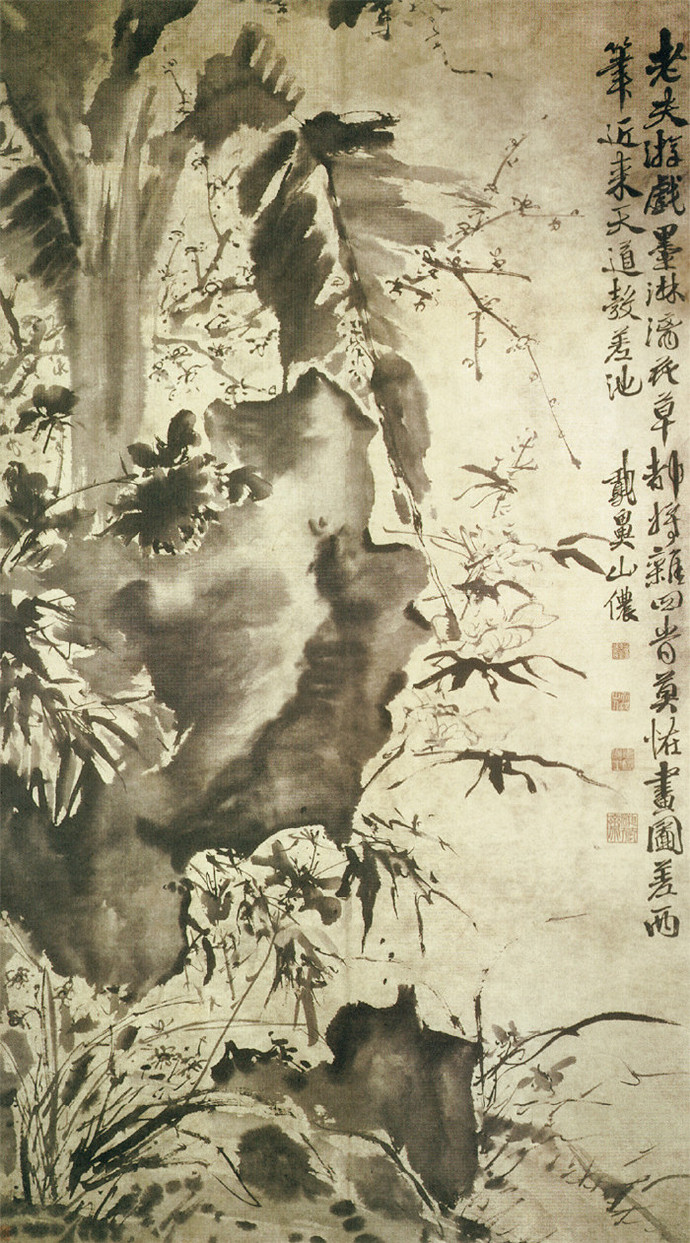 老夫游戲墨淋漓花草都將雜四旹莫恠畫圖差兩
筆近來天道彀差池 鵞鼻山儂